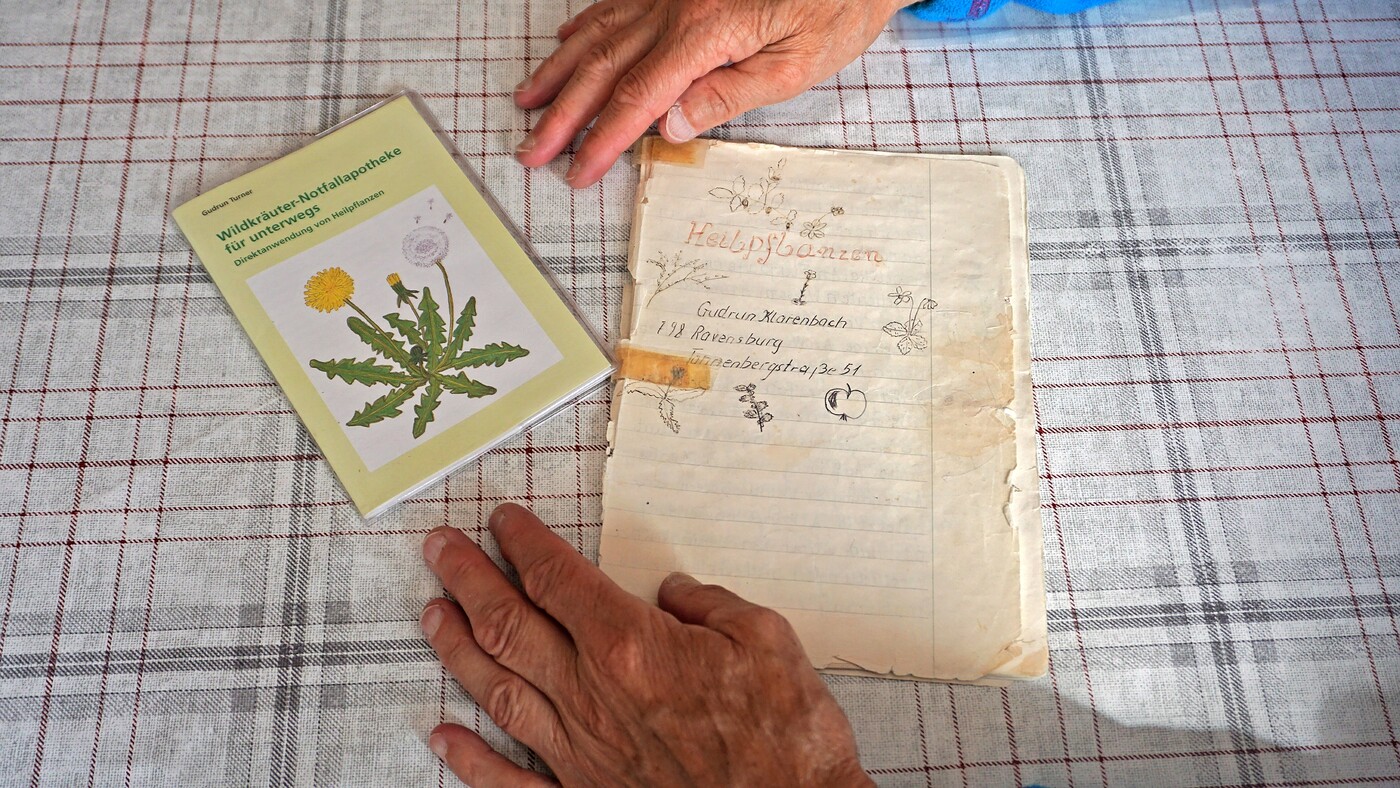 Gudrun Turner
Wildkräuter-Notfallapotheke
für unterwegs
Direktanwendung von Heilpflanzen
Heilpflanzen
Gudrun Klarenbach
798 Ravensburg
Tannenbergstraße 51